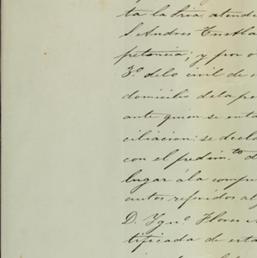 ta la hria, atende
S. Andres Tuxtla
petencia; y por o
3.º delo civil de
domicilio dela pe
ante quien se enta
ciliacion: se decla
con el pedim.to d
lugar ála compe
autos referidos al
D. Ygn.º Flores
tificada de esta